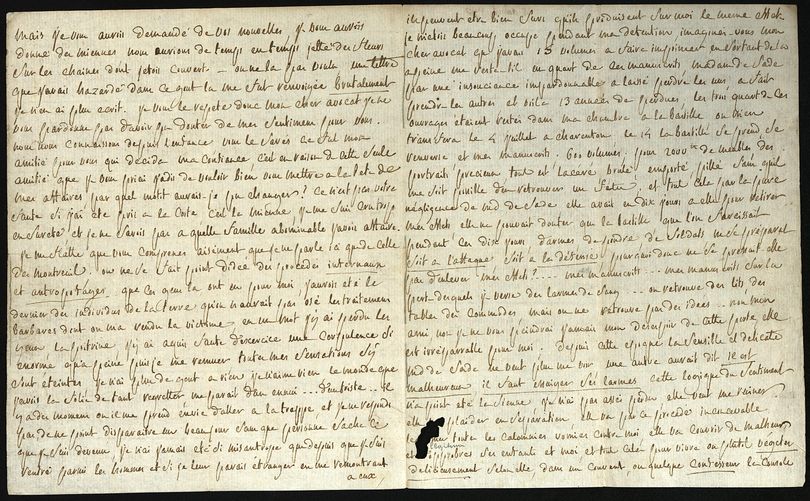 mais je vous aurois demandé de vos nouvelles je vous aurois
donné des miennes nous aurions de temps en temps jetté des fleurs
sur les chaines dont jetois couvert — on ne la pas voulu une lettre
que j'avais hazardé dans ce gout la me fut renvoyée brutalement
je n'en ai plus ecrit. je vous le repete donc mon cher avocat je ne
vous pardonne pas d'avoir pu douter de mes sentimens pour vous.
nous nous connaissons depuis l'enfance vous le savés ce fut mon
amitié pour vous qui decida ma confiance c'est en raison de cette seule
amitié que je vous priai jadis de vouloir bien vous mettre a la tete de
mes affaires par quel motif aurais-je pu changer? ce n'est pas votre
faute si j'ai eté pris a la Coste c'est la mienne je me suis cru trop
en sureté et je ne savois pas a quelle famille abominable j'avois affaire.
je me flatte que vous comprenés aisément que je ne parle ici que de celle
de montreuil on ne se fait point d'idée des procédés infernaux
et antropofages que ces gens la ont eu pour moi j'aurois eté le
dernier des individus de la terre qu'on n'aurait pas osé les traitemens
barbares dont on m'a rendu la victime, en un mot j'y ai perdu les
yeux la poitrine j'y ai aquis faute d'exercice une corpulence si
enorme qu'a peine puis-je me remuer toutes mes sensations s'y
sont eteintes je n'ai plus de gout a rien je n'aime rien le monde que
j'avois la folie de tant regretter me parait d'un ennui ... d'un triste ... il
y a des momens ou il me prend envie d'aller a la trappe et je ne reponds
pas de ne point disparaitre un beau jour sans que personne sache ce
que je suis devenu je n'ai jamais eté si misantrope que depuis que je suis
rentré parmi les hommes et si je leur parais étranger en me remontrant
a eux,
ils peuvent etre bien surs qu'ils produisent sur moi le meme effet
je m'etois beaucoup occupé pendant ma detention imaginés vous mon
cher avocat que j'avais 15 volumes a faire imprimer en sortant de la
a peine me reste t'il un quart de ces manuscrits madame de Sade
par une insouciance impardonnable a laissé perdre les uns a fait
prendre les autres et voila 13 années de perdues, les trois quart de ces
ouvrages etaient restés dans ma chambre a la bastille on vient
transfera le 4 juillet a charenton le 14 la bastille se prend se
renverse et mes manuscrits. 600 volumes. pour 2000 lt de meubles des
portraits precieux tout est laceré brulé emporté pillé sans qu'il
me soit possible d'en retrouver un fétu et tout cela par la pure
négligence de md de Sade elle avait eu dix jours a elle pour retirer
mes effets elle ne pouvait douter que la bastille que l'on farcissait
pendant ces dix jours d'armes de poudre de soldats ne se preparat
soit a l'attaque soit a la défense pourquoi donc ne se pressait elle
pas d'enlever mes effets? ... mes manuscrits ... mes manuscrits sur la
perte desquels je verse des larmes de sang ... on retrouve des lits des
tables des commodes mais on ne retrouve pas des idées ... non mon
ami non je ne vous peindrai jamais mon desespoir de cette perte elle
est irréparable pour moi. depuis cette epoque la sensible et delicate
md de Sade ne veut plus me voir une autre aurait dit il est
malheureux il faut essuyer ses larmes cette logique du sentiment
n'a point eté la sienne je n'ai pas assés perdu elle veut me ruiner
elle plaider en separation elle va par ce procédé inconcevable
toutes les calomnies vomies contre moi elle va couvrir de malheur
et d'opprobres ses enfants et moi et tout cela pour vivre ou plutot vegeter
delicieusement selon elle, dans un couvent, ou quelque confesseur la console